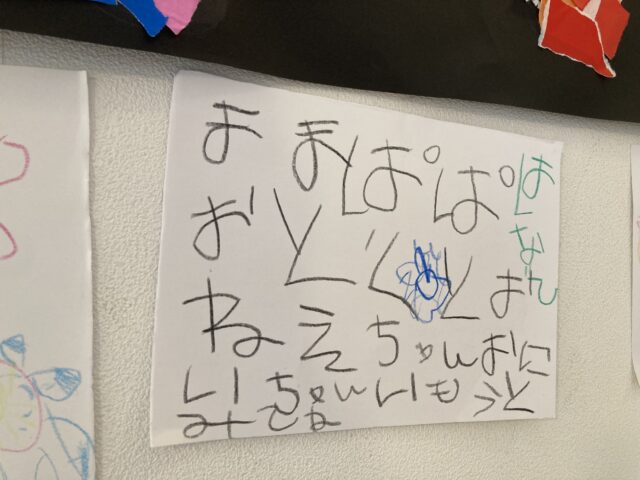 ままとぱぱ
おとうとお
ねえちゃんおに
いちゃんいもうと